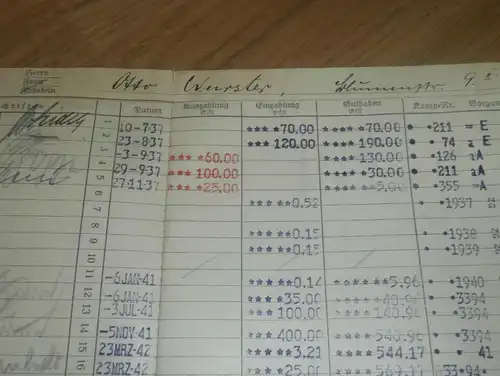 Herrn
Frau
Fräulein
Otto Wurster, Blumenstr. 9
Datum Auszahlung Einzahlung Guthaben Konto-Nr.
1 10-7.37 *** *70.00 *** *70.00 • *211 = E
2 23-8.37 *** 120.00 *** 190.00 • * 74 a E
3 -3-9.37 *** *60.00 *** 130.00 • *126 aA
4 29-9.37 *** 100.00 *** *30.00 • *211 aA
5 27.11.37 *** *25.00 *** **5.00 • *355 =A
6 *****0.52 • *1937
7
8 *****0.15 • *1938
9 *****0.15 • *1939
10
11 -6JAN-41 *****0.14 *****5.96 • *1940
12 -6JAN-41 ****35.00 ****40.96 • *3394
13 -3JUL-41 ***100.00 ***140.96 • *3394
14
15 -5NOV-41 ***400.00 ***540.96 • *3394
16 23MRZ-42 *****3.21 ***544.17 41
23MRZ-42 ****25.00 ***569.17